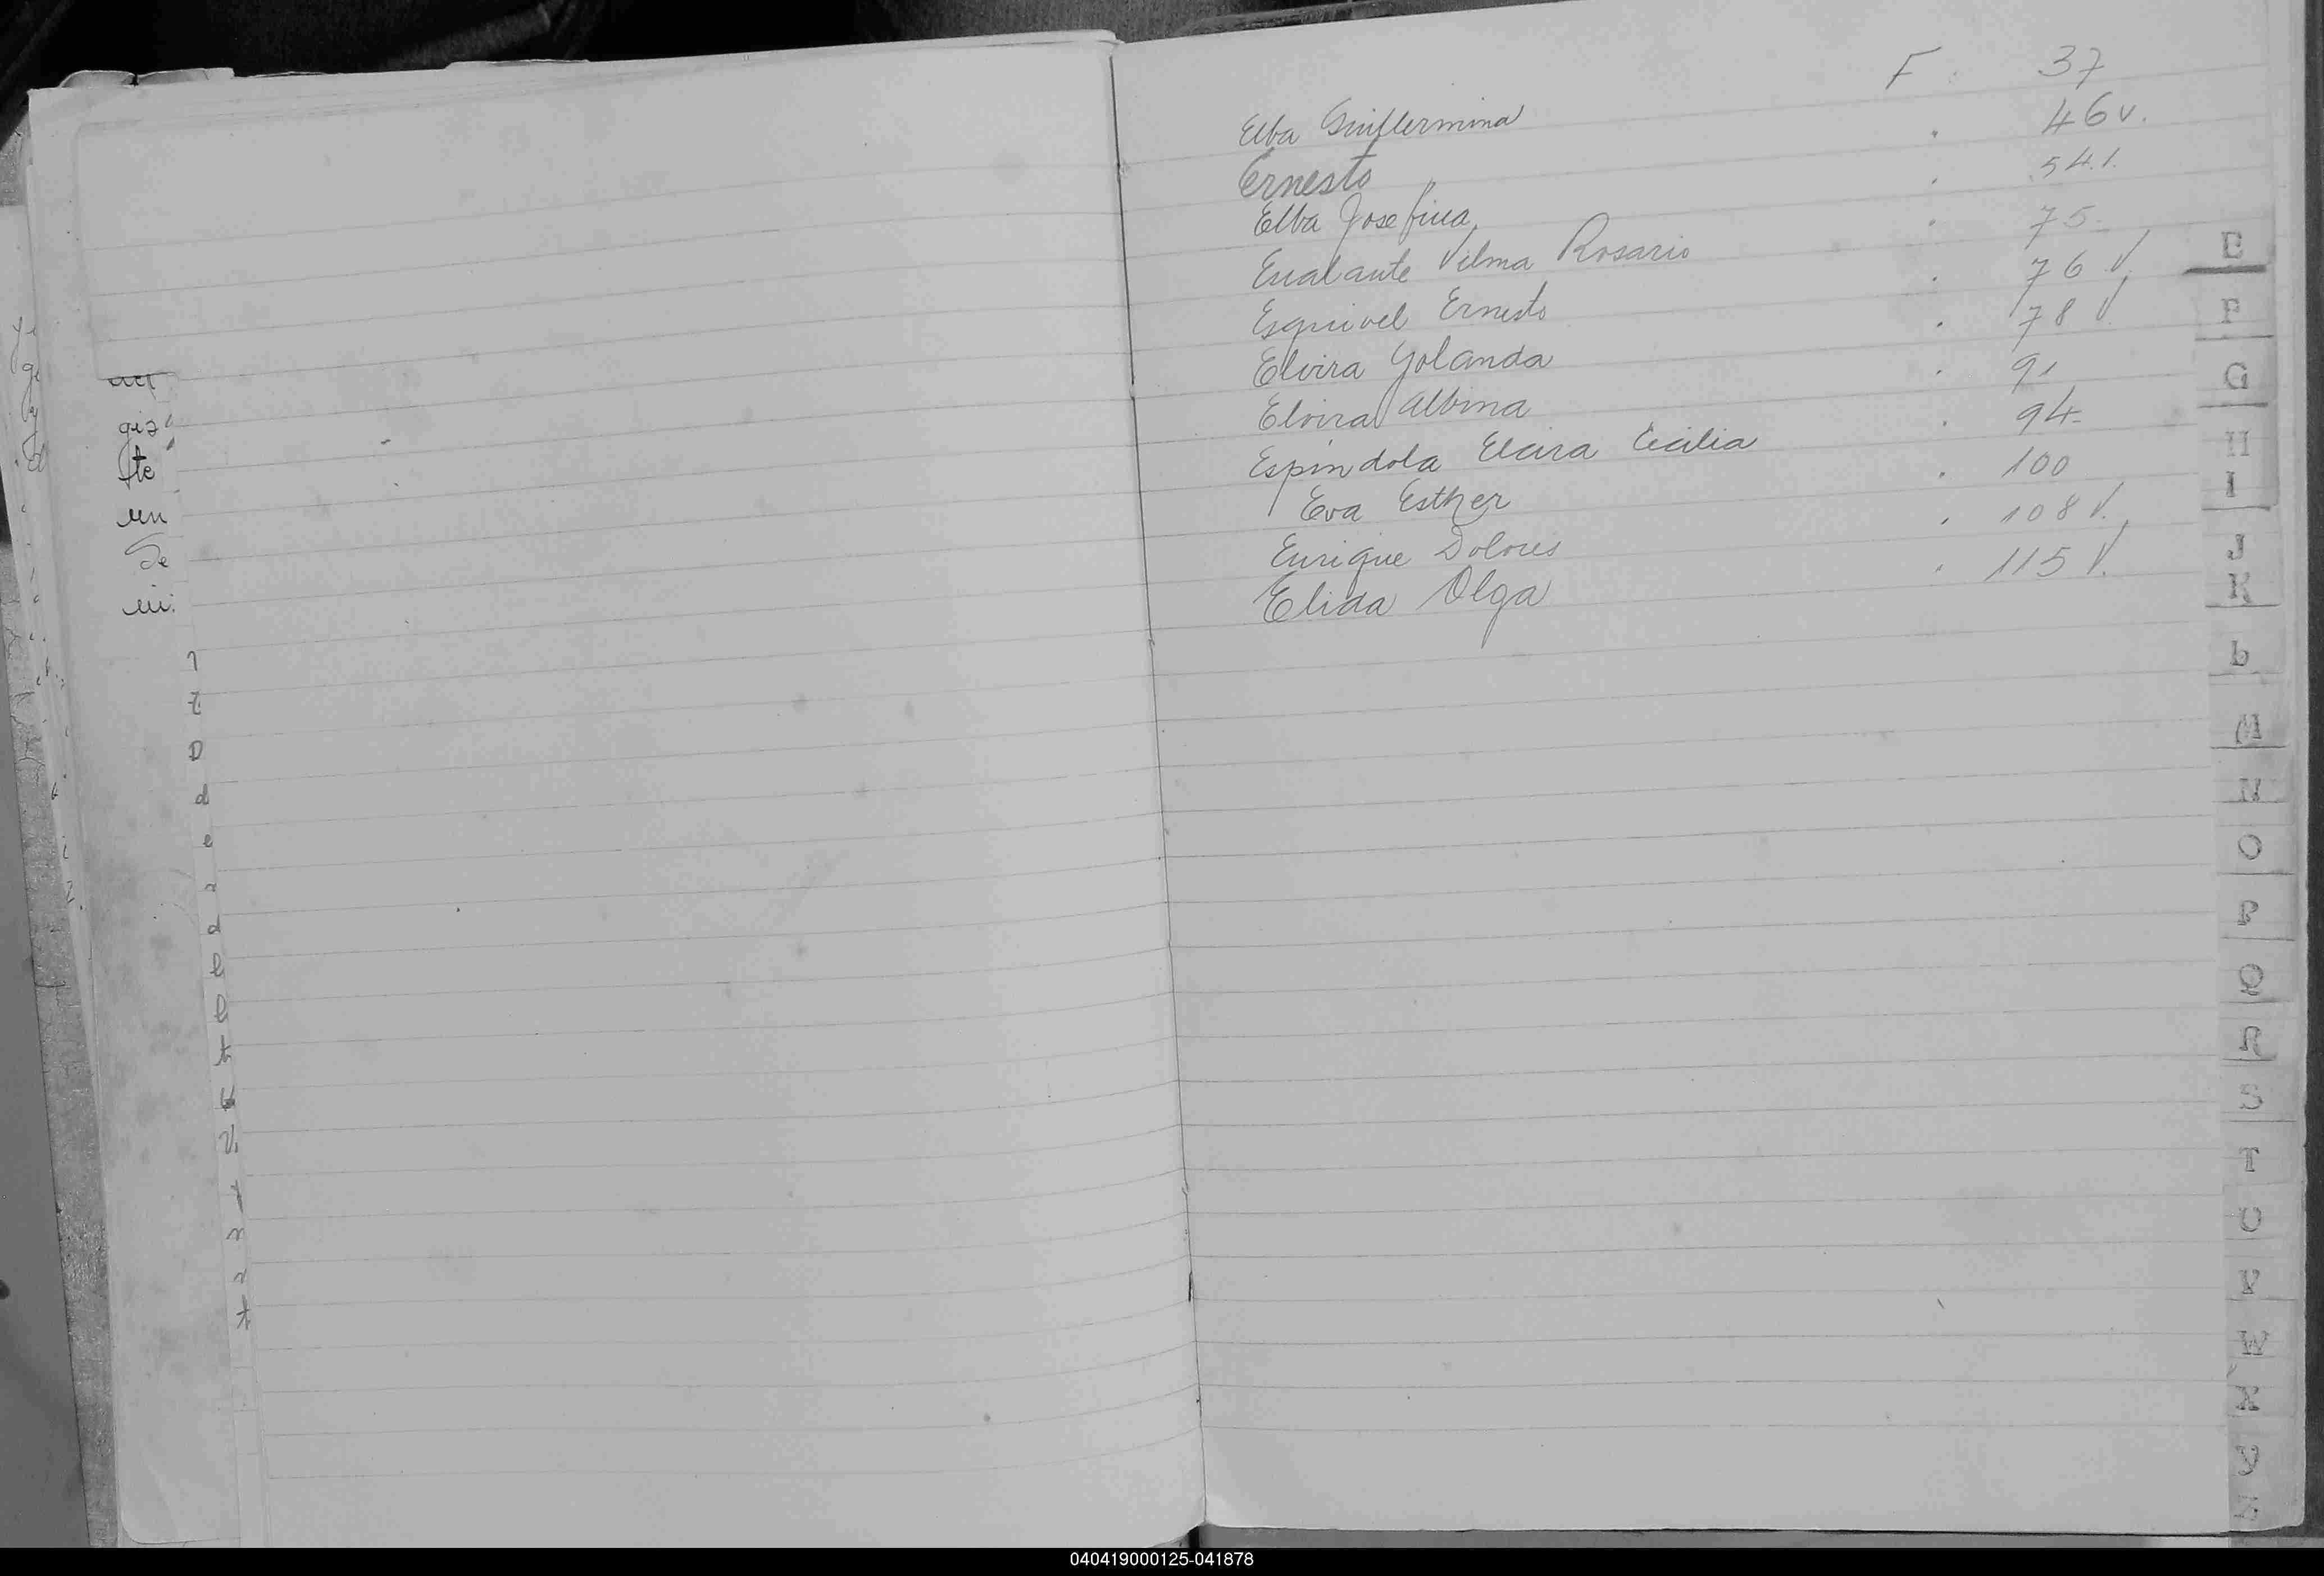 Elba Guillermina F. 37
Ernesto . 46 v.
Elba Josefina . 54.
Escalante Vilma Rosario . 75
Esquivel Ernesto . 76 V.
Elvira Yolanda . 78 V.
Elvira Albina . 91
Espindola Elcira Cecilia . 94
Eva Esther . 100
Enrique Dolores . 108 V.
Elida Olga . 115 V.
E
F
G
H
I
J
K
L
M
N
O
P
Q
R
S
T
U
V
W
X
te
un
Se
040419000125-041878